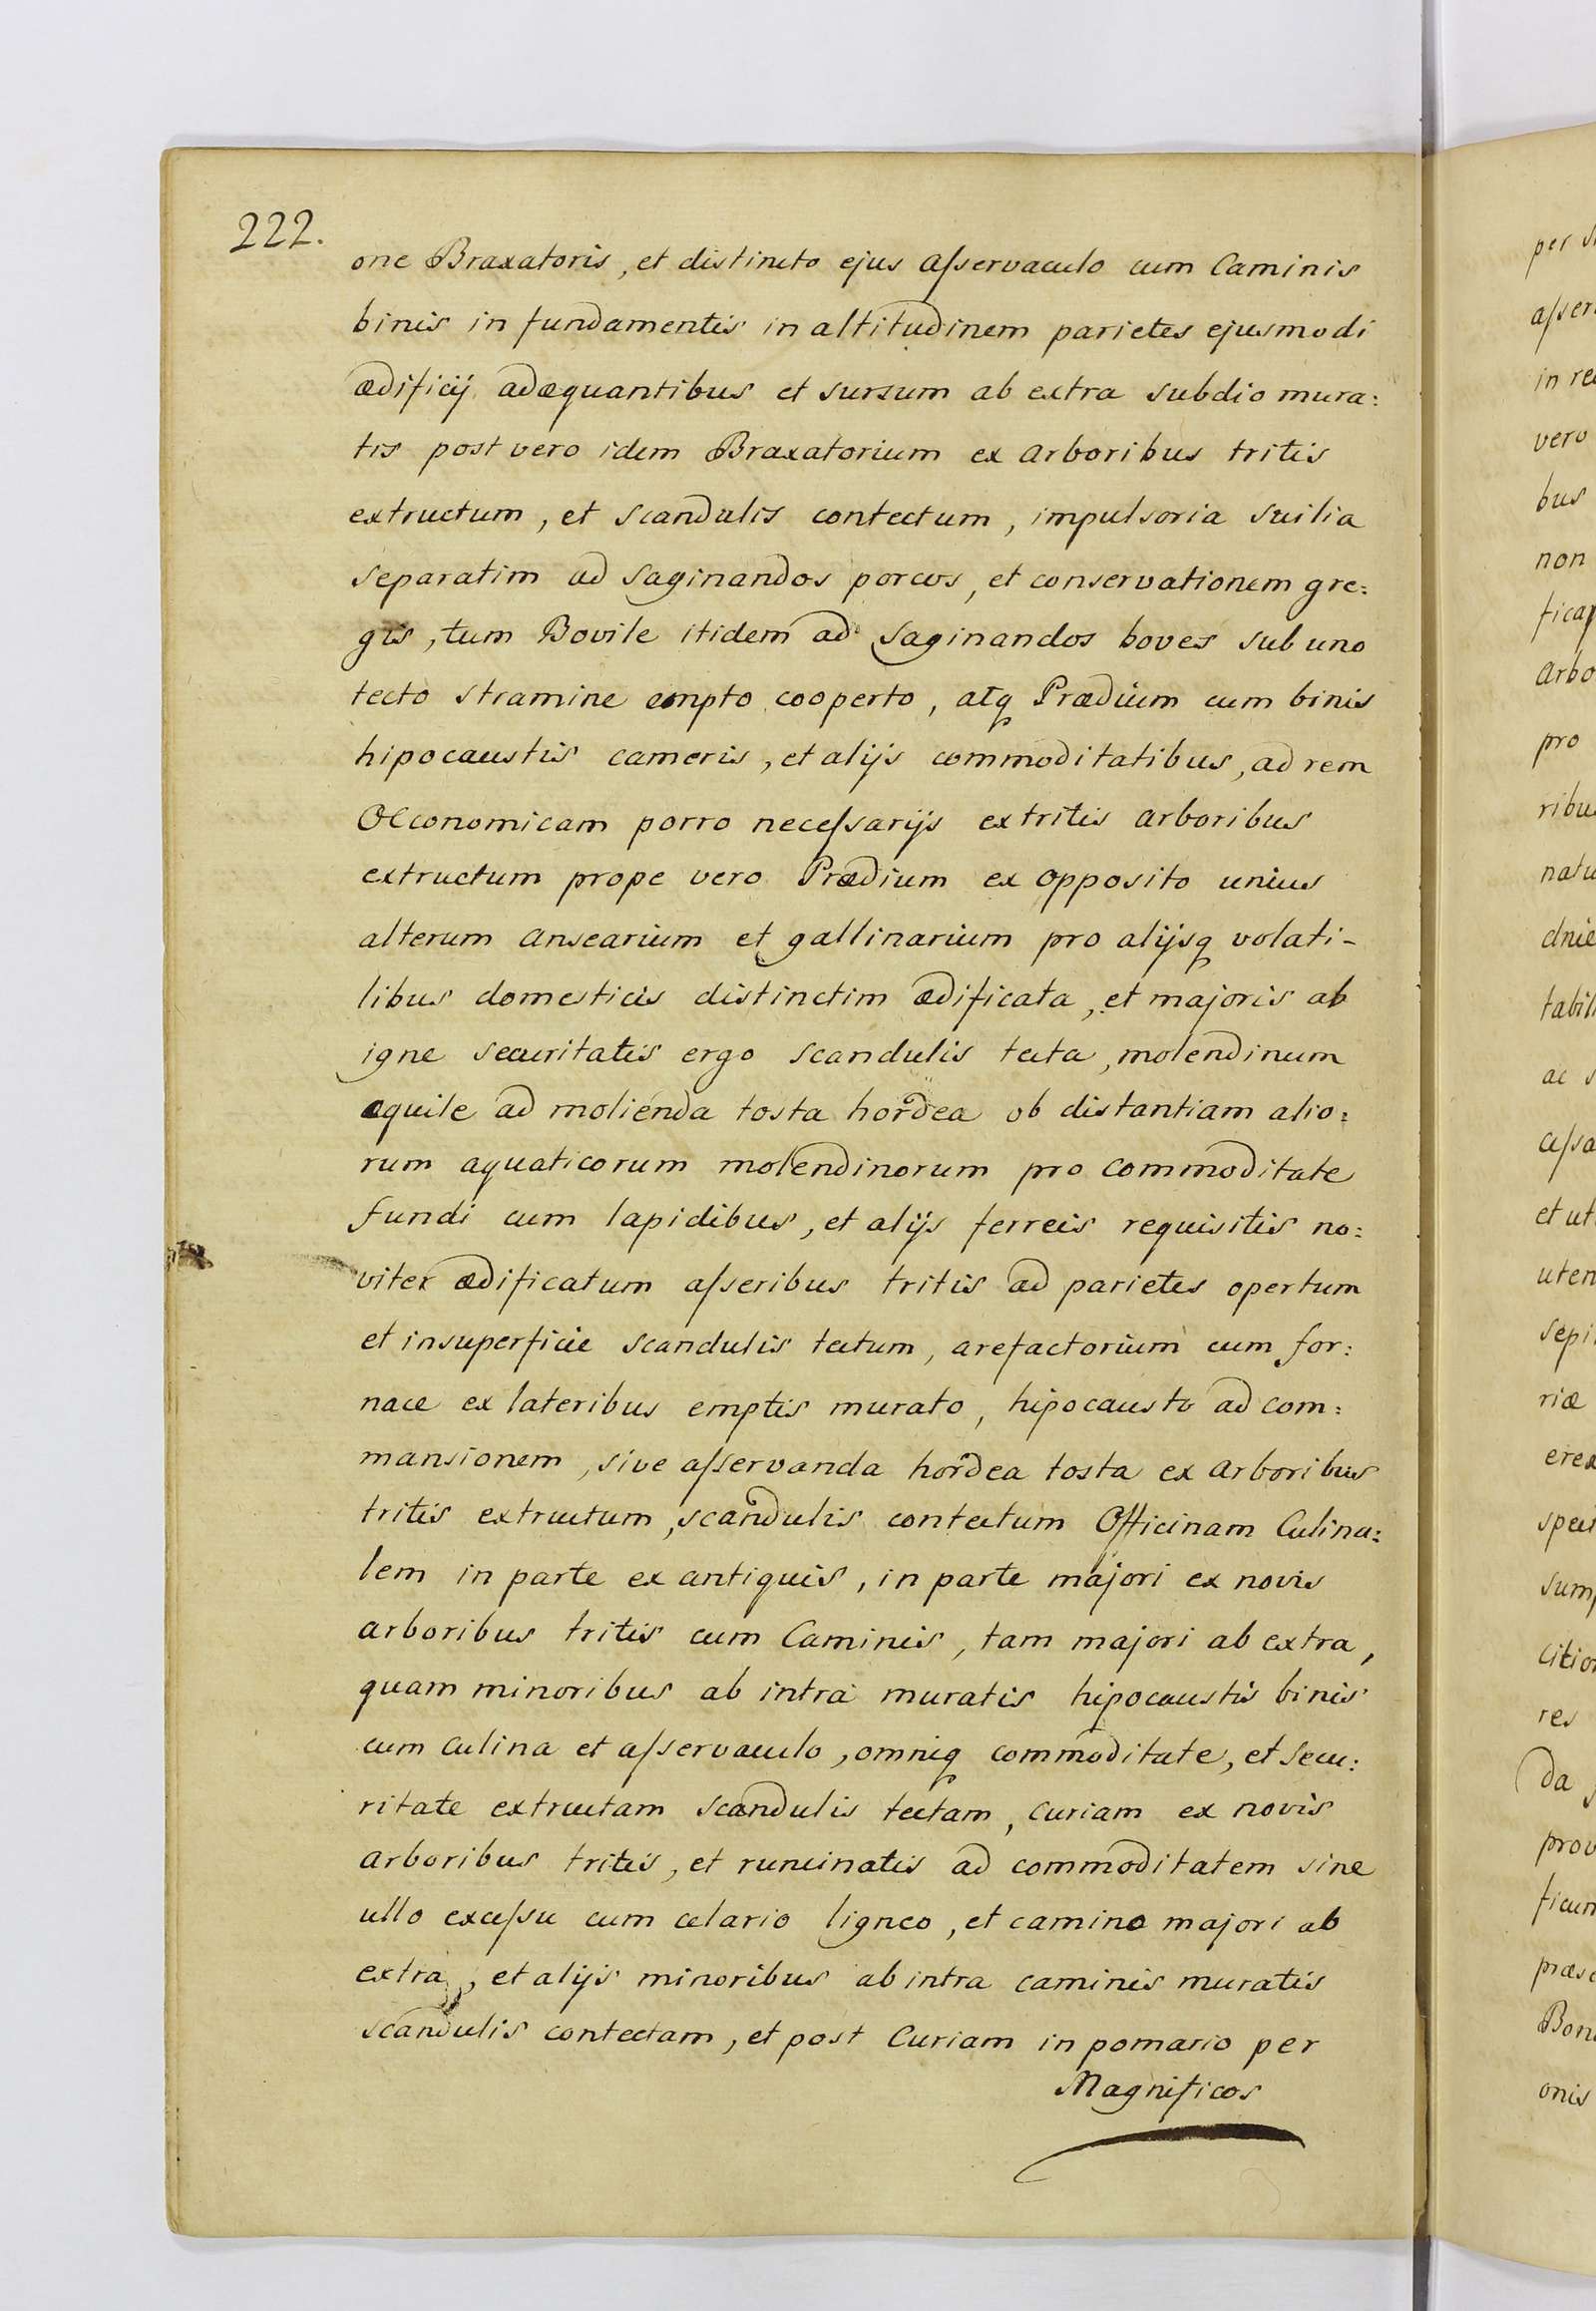 222.
one Braxatoris, et distincto ejus aſservaculo cum Caminis
binis in fundamentis in altitudinem parietes ejusmodi
ædificij adæquantibus et sursum ab extra subdio mura:
tis post vero idem Braxatorium ex arboribus tritis
extructum, et scandulis contectum, impulsoria suilia
separatim ad saginandos porcos, et conservationem gre:
gis, tum Bovile itidem ad saginandos boves sub uno
tecto stramine empto cooperto, atq Prædium cum binis
hipocaustis cameris, et alijs commoditatibus, ad rem
Œconomicam porro neceſsarijs ex tritis arboribus
extructum prope vero Prædium ex opposito unius
alterum ansearium et gallinarium pro alijsq volati-
libus domesticis distinctim ædificata, et majoris ab
igne securitatis ergo scandulis tecta, molendinum
equile ad molienda tosta hordea ob distantiam alio:
rum aquaticorum molendinorum pro commoditate
fundi cum lapidibus, et alijs ferreis requisitis no:
viter ædificatum aſseribus tritis ad parietes opertum
et in superficie scandulis tectum, arefactorium cum for:
nace ex lateribus emptis murato, hipocausto ad com:
mansionem, sive aſservanda hordea tosta ex arboribus
tritis extructum, scandulis contectum Officinam Culina:
lem in parte ex antiquis, in parte majori ex novis
arboribus tritis cum Caminis, tam majori ab extra,
quam minoribus ab intra muratis hipocaustis binis
cum culina et aſservaculo, omniq commoditate, et secu:
ritate extructam scandulis tectam, curiam ex novis
arboribus tritis, et runcinatis ad commoditatem sine
ullo exceſsu cum celario ligneo, et camino majori ab
extra, et alijs minoribus ab intra caminis muratis
scandulis contectam, et post Curiam in pomario per
Magnificos
per
aſser
in re
vero
bus
non
fica
arbo
pro
ribu
natu
dnie
tabil
ac
ceſsa
et ut
uten
sepi
riæ
erex
spect
sum
citio
res
da
prov
ficum
præs
Bon
onis